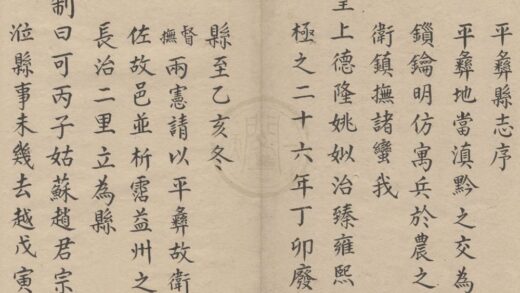 平彝縣志序
平彝地當滇黔之交為
鎖鑰明仿寓兵於農之
衛鎮撫諸蠻我
上德隆姚姒治臻雍熙
極之二十六年丁卯廢
縣至乙亥冬
督撫兩憲請以平彝故衛
佐故邑並析霑益州之
長治二里立為縣
制曰可丙子姑蘇趙君宗
涖縣事未幾去越戊寅